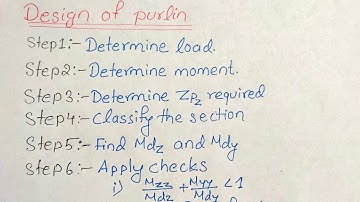 Design of purlin
Step1:- Determine load.
Step2:- Determine moment.
Step3:- Determine Zpz required
Step4:- Classify the section
Step5:- Find Mdz and Mdy
Step6:- Apply checks
i) Mzz/Mdz + Myy/Mdy < 1